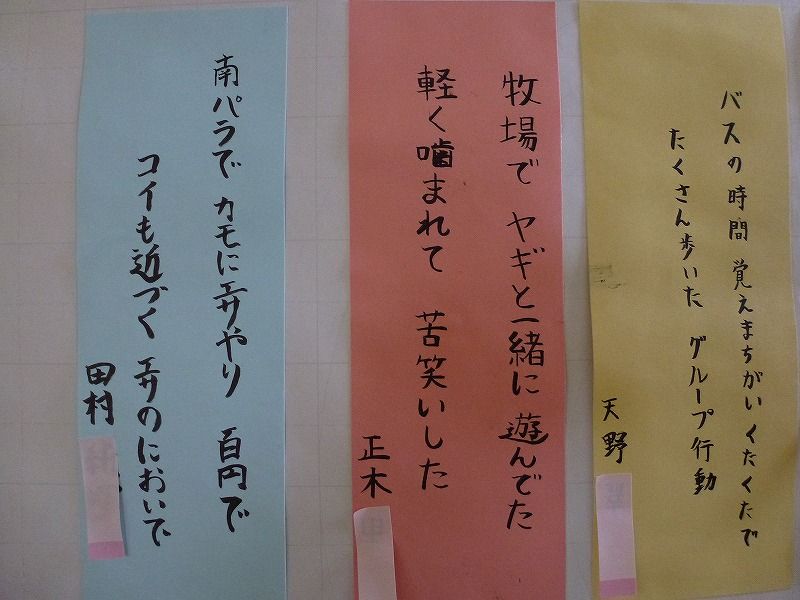 バスの時間 覚えまちがい くたくたで
たくさん歩いた グループ行動
天野
牧場で ヤギと一緒に 遊んでた
軽く噛まれて 苦笑いした
正木
南パラで カモにエサやり 百円で
コイも近づく エサのにおいで
田村